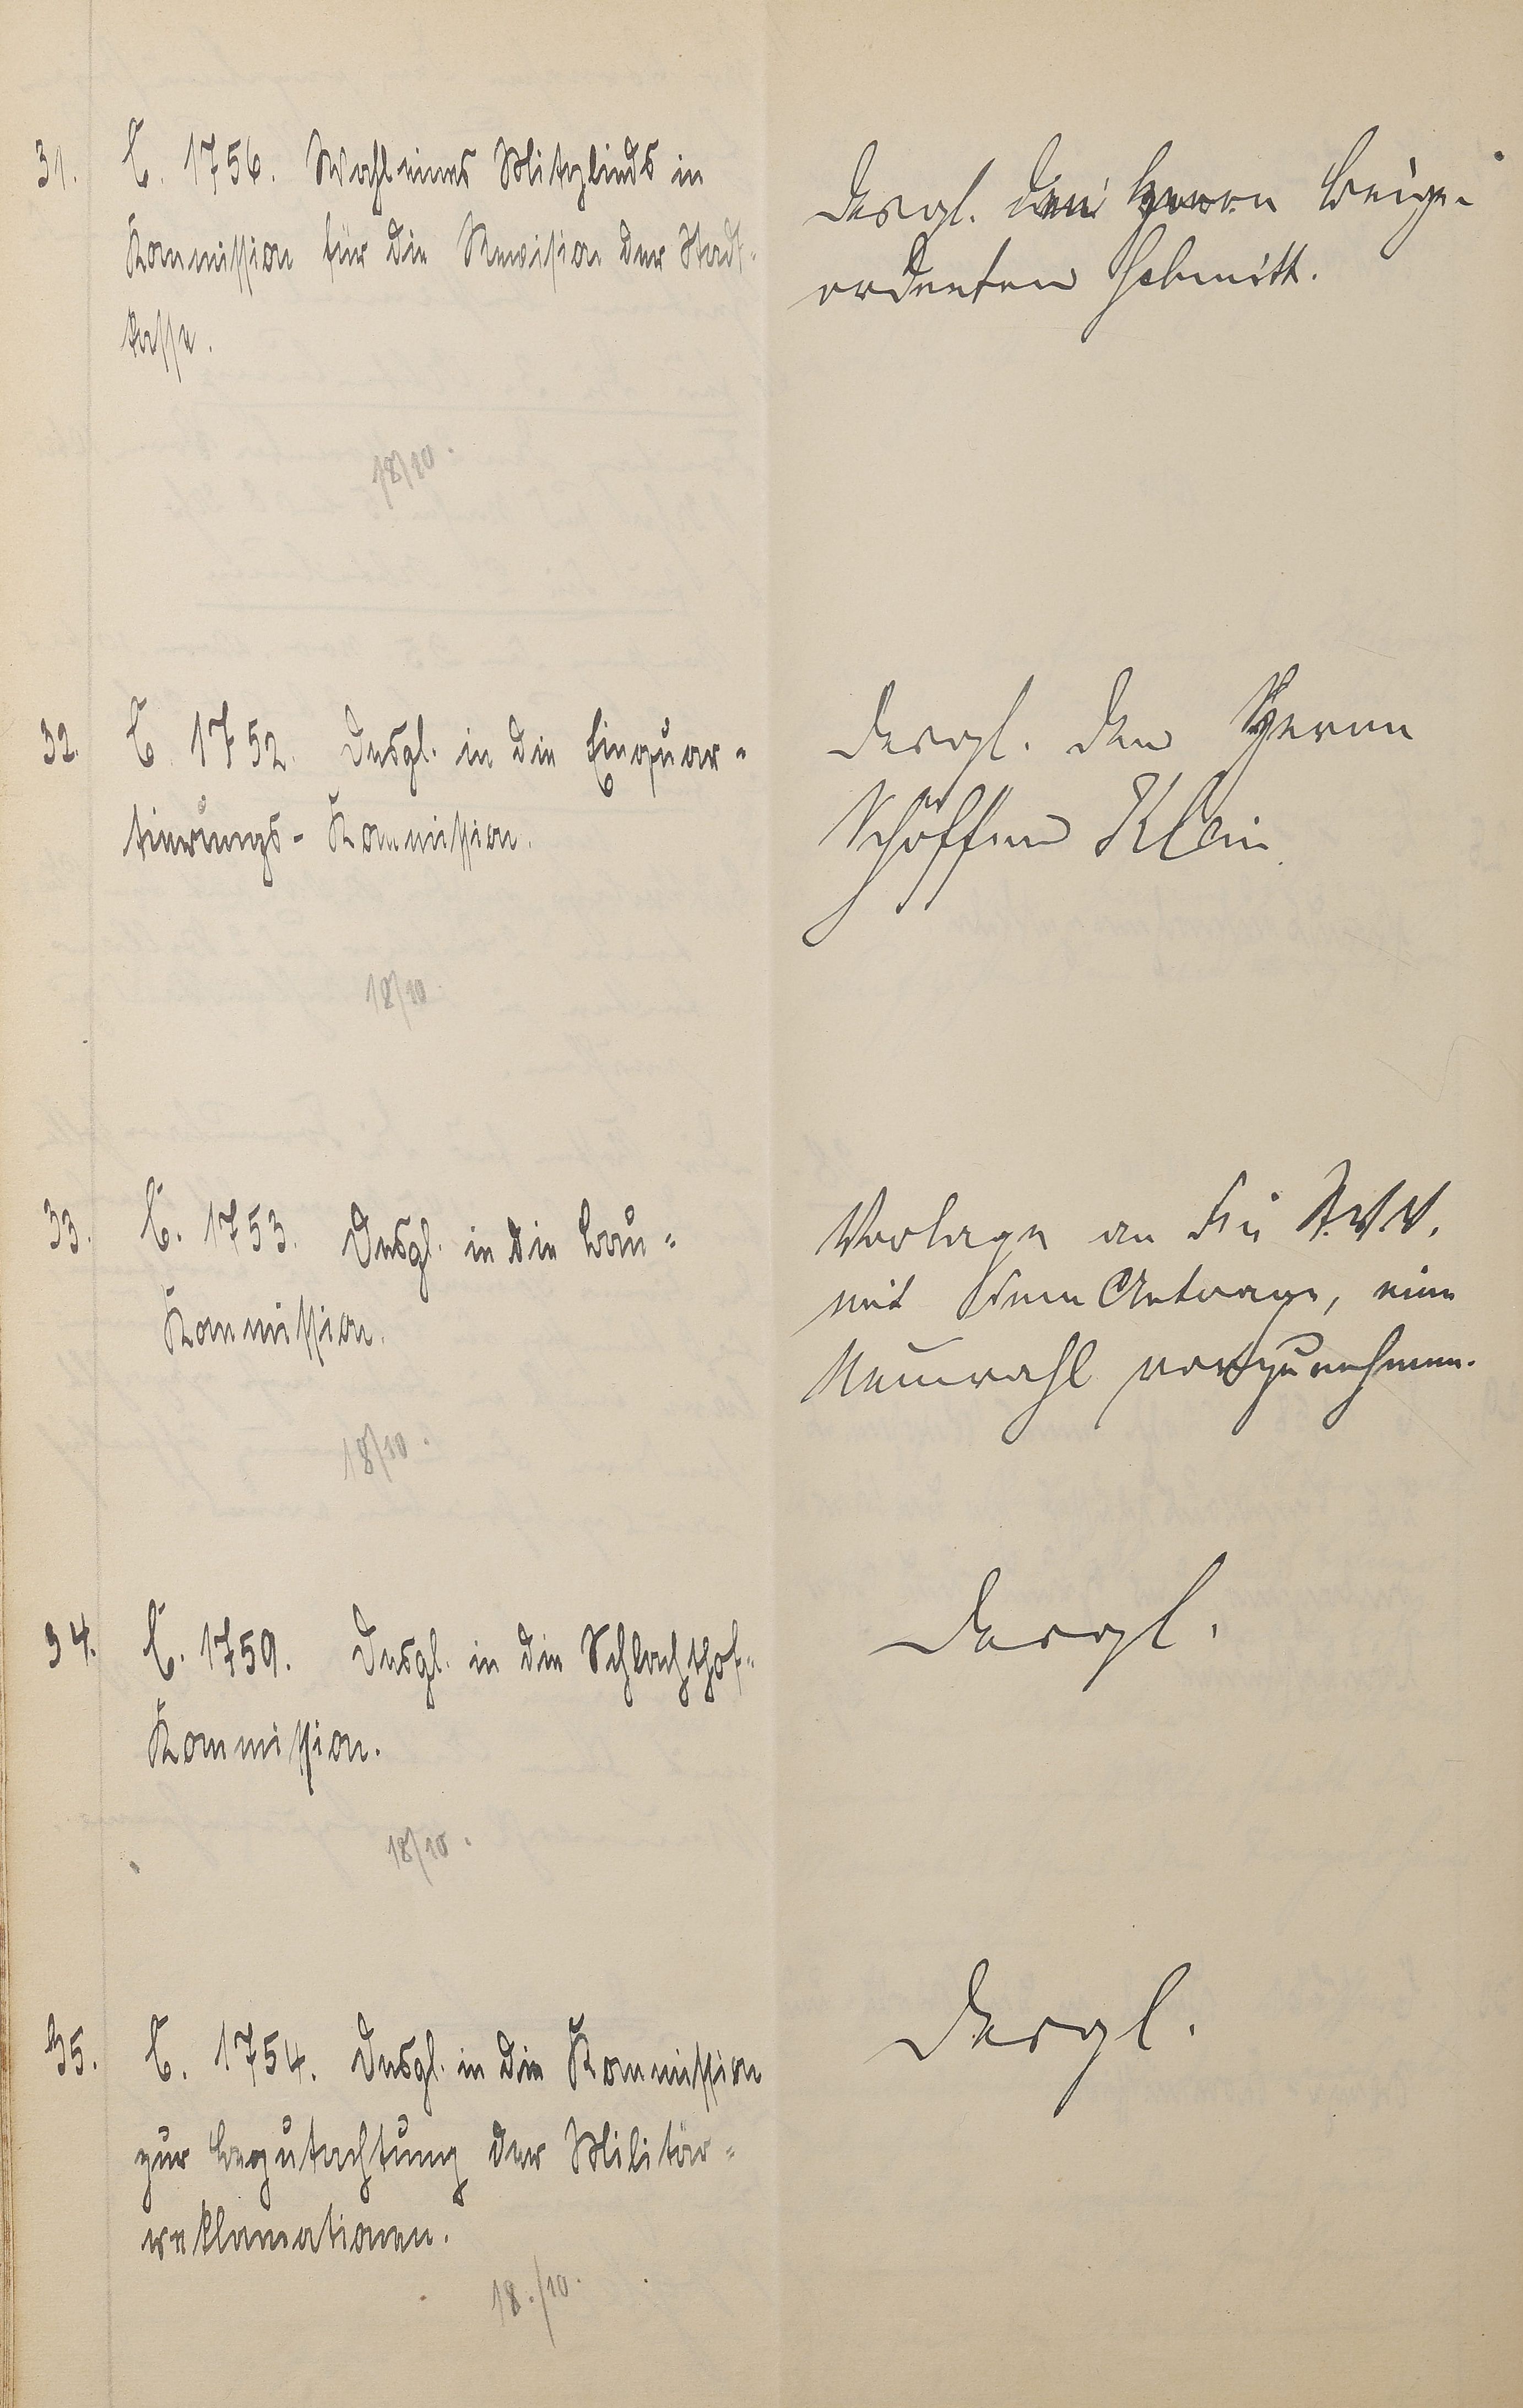 31. C. 1756. Wahl eines Mitglieds in
Kommission für die Revision der Stadt-
kasse.
18/10.
desgl. den Herrn Beige-
ordneten Schmitt.
32. C. 1752. Desgl. in die Einquar-
tierungs-Kommission.
18/10.
desgl. den Herrn
Schöffen Klein.
33. C. 1753. Desgl. in die Bau-
Kommission.
18/10.
Vorlage an die St.V.V.
mit dem Antrage, eine
Neuwahl vorzunehmen.
34. C. 1759. Desgl. in die Schlachthof-
Kommission.
18/10.
desgl.
35. C. 1754. Desgl. in die Kommission
zur Begutachtung der Militär-
reklamationen.
18./10.
desgl.